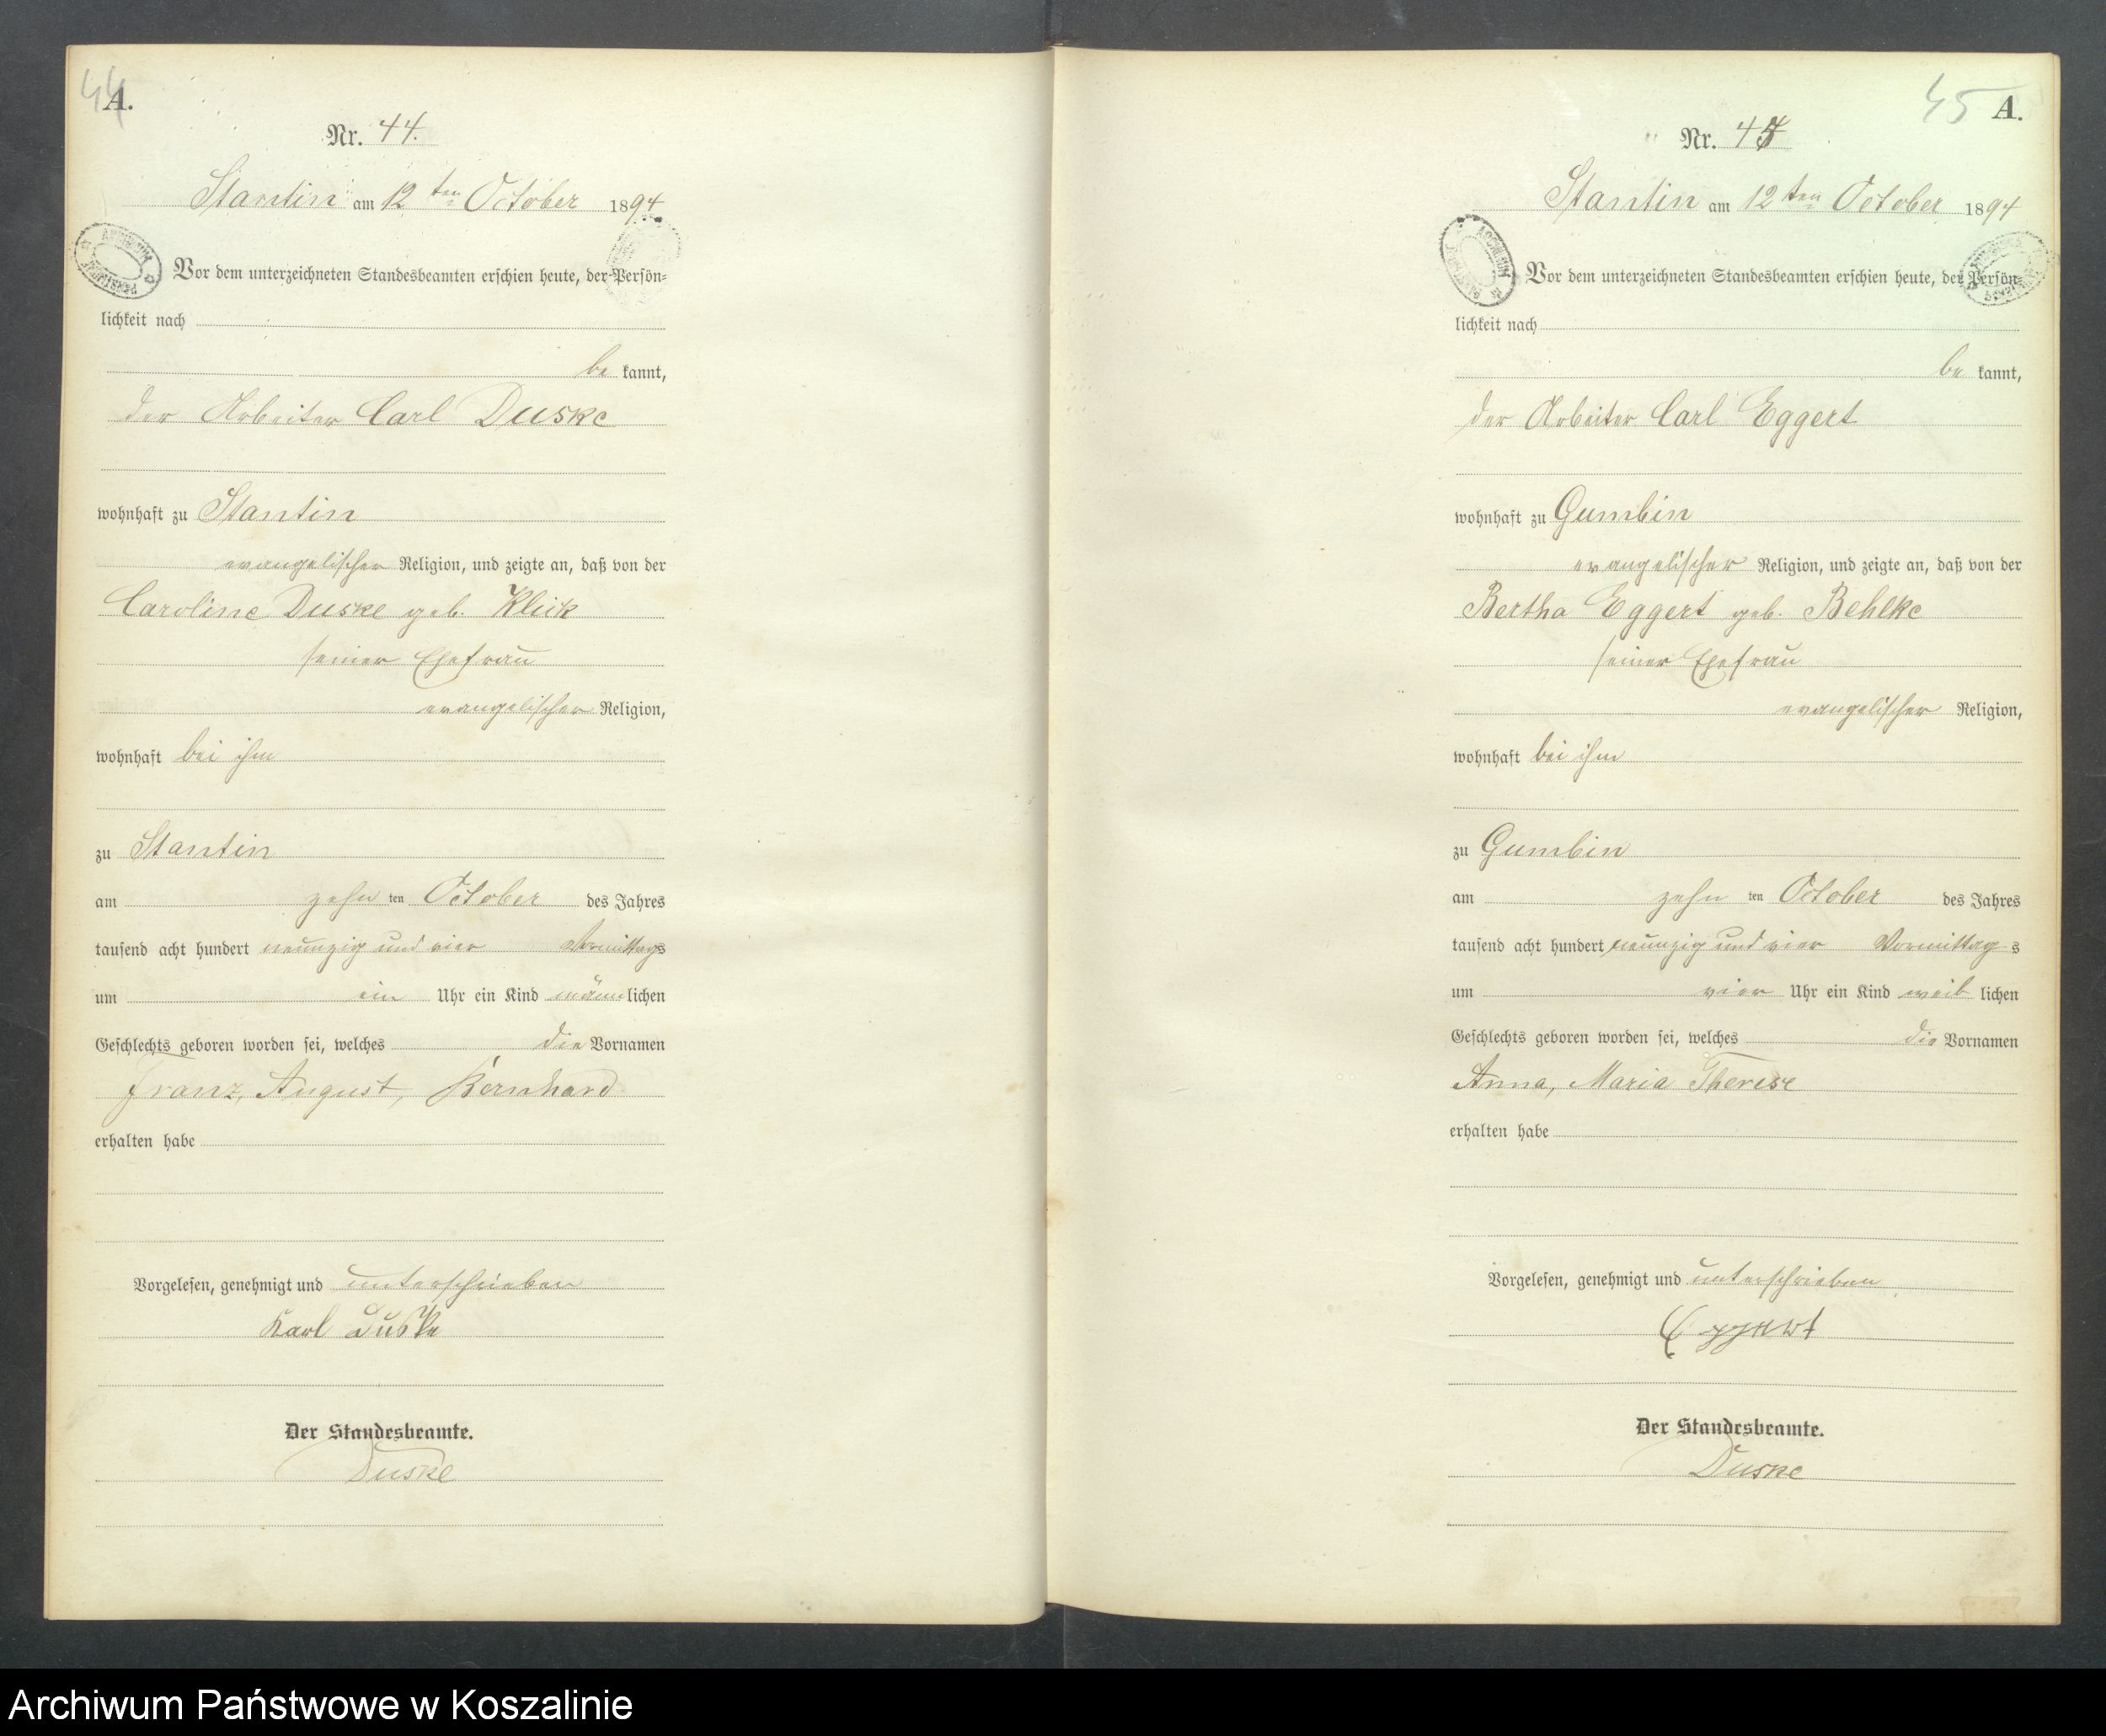 44
A.
Nr. 44.
Stantin am 12ten October 1894
Vor dem unterzeichneten Standesbeamten erschien heute, der Persön-
lichkeit nach
be kannt,
der Arbeiter Carl Duske
wohnhaft zu Stantin
evangelischer Religion, und zeigte an, daß von der
Caroline Duske geb. Klick
seiner Ehefrau
evangelischer Religion,
wohnhaft bei ihm
zu Stantin
am zehn ten October des Jahres
tausend acht hundert neunzig und vier Vormittags
um ein Uhr ein Kind männlichen
Geschlechts geboren worden sei, welches die Vornamen
Franz, August, Bernhard
erhalten habe
Vorgelesen, genehmigt und unterschrieben
Karl Duske
Der Standesbeamte.
Duske
45 A.
Nr. 45
Stantin am 12ten October 1894
Vor dem unterzeichneten Standesbeamten erschien heute, der Persön-
lichkeit nach
be kannt,
der Arbeiter Carl Eggert
wohnhaft zu Gumbin
evangelischer Religion, und zeigte an, daß von der
Bertha Eggert geb. Behlke
seiner Ehefrau
evangelischer Religion,
wohnhaft bei ihm
zu Gumbin
am zehn ten October des Jahres
tausend acht hundert neunzig und vier Vormittag s
um vier Uhr ein Kind weib lichen
Geschlechts geboren worden sei, welches die Vornamen
Anna, Maria Therese
erhalten habe
Vorgelesen, genehmigt und unterschrieben
Eggert
Der Standesbeamte.
Duske
Archiwum Państwowe w Koszalinie